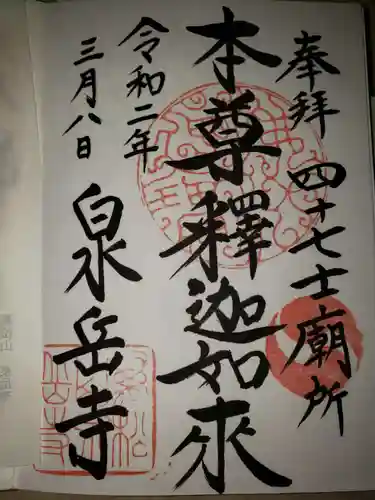 奉拝 四十七士廟所
本尊釋迦如来
令和二年
三月八日
泉岳寺